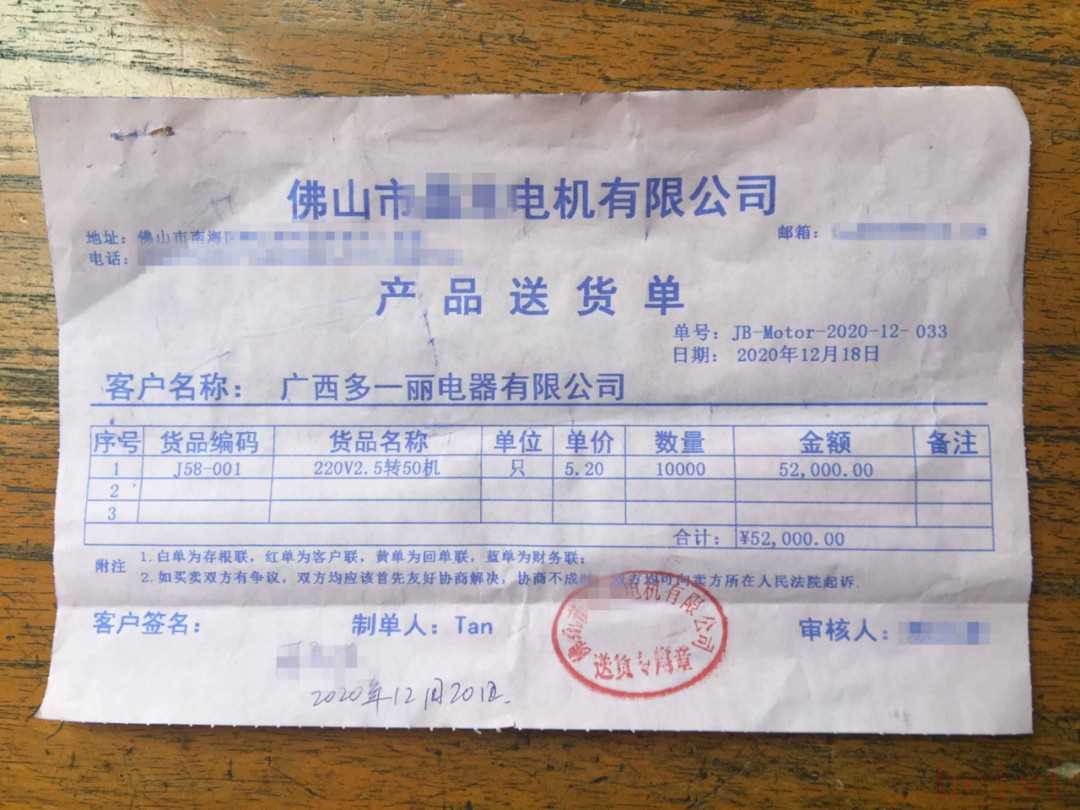 佛山市 电机有限公司
地址: 佛山市南海
邮箱:
电话:
产品送货单
单号: JB-Motor-2020-12- 033
日期: 2020年12月18日
客户名称: 广西多一丽电器有限公司
序号 货品编码 货品名称 单位 单价 数量 金额 备注
1 J58-001 220V2.5转50机 只 5.20 10000 52,000.00
2
3
合计: ¥52,000.00
附注
1.白单为存根联, 红单为客户联, 黄单为回单联, 蓝单为财务联;
2.如买卖双方有争议, 双方均应该首先友好协商解决, 协商不成时, 双方均可向卖方所在人民法院起诉.
客户签名: 制单人: Tan 审核人:
电机有限公司
送货专用章
2020年12月20日.